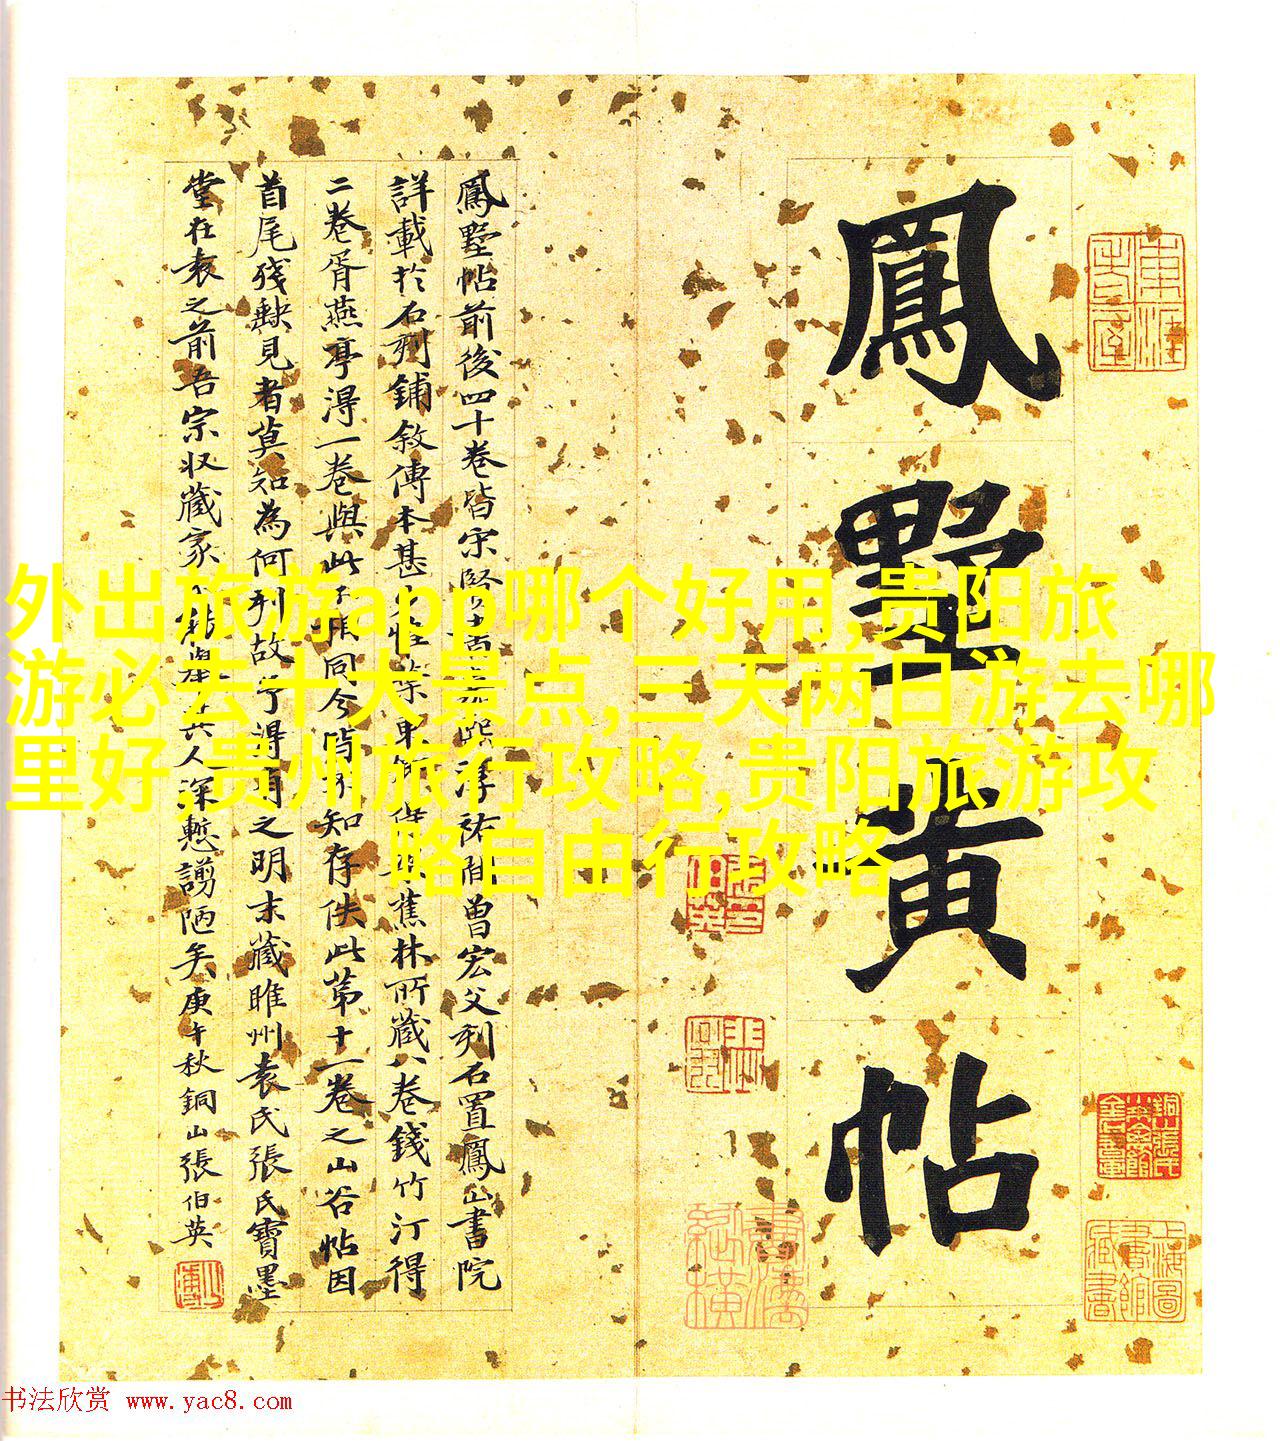 鳳墅黄帖
鳳墅帖前後四十卷皆宋賢
淳祐間曾宏父刻石置鳳山書院
詳載於石刻鋪敘傳本甚
蕉林所藏八卷錢竹汀得
二卷胥燕亭淂一卷與此不相同今皆不知存佚此第十一卷之山谷帖因
首尾殘缺見者莫知為何刊故予得有之明末藏睢州袁氏張氏寶墨
堂在袁之前吾宗収藏家
人深慙謭陋矣庚午秋銅山張伯英
外出旅游app哪个好用,贵阳旅
游必去十大景点,三天两日游去哪
里好,贵州旅行攻略,贵阳旅游攻
略自由行攻略
书法欣赏 www.yac8.com